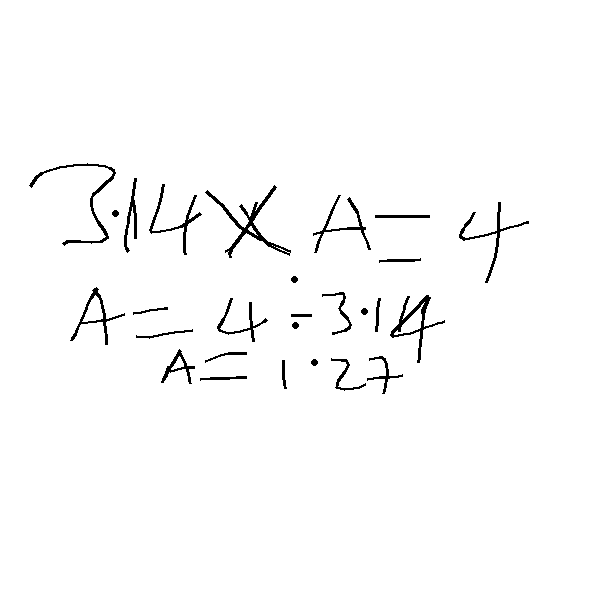 3·14 × A = 4
A = 4 ÷ 3·14
A = 1·27